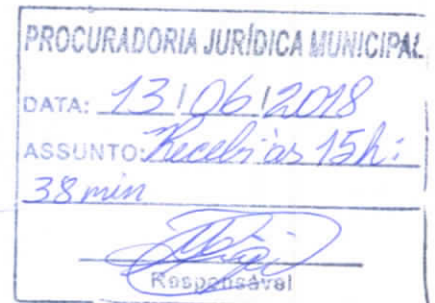 PROCURADORIA JURÍDICA MUNICIPAL
DATA: 13/06/2018
ASSUNTO: Recebi às 15h:
38min
Responsável